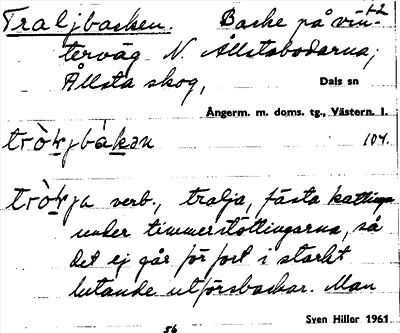 +2
Traljbacken. Backe på vin-
terväg N. Ållstabodarna,
Ållsta skog,
Dals sn
Ångerm. m. doms. tg., Västern. l.
104.
verb, tralja, fästa kättingar
under timmerstöttingarna, så
det ej går för fort i starkt
lutande utförsbackar. Man
Sven Hiller 1961
56